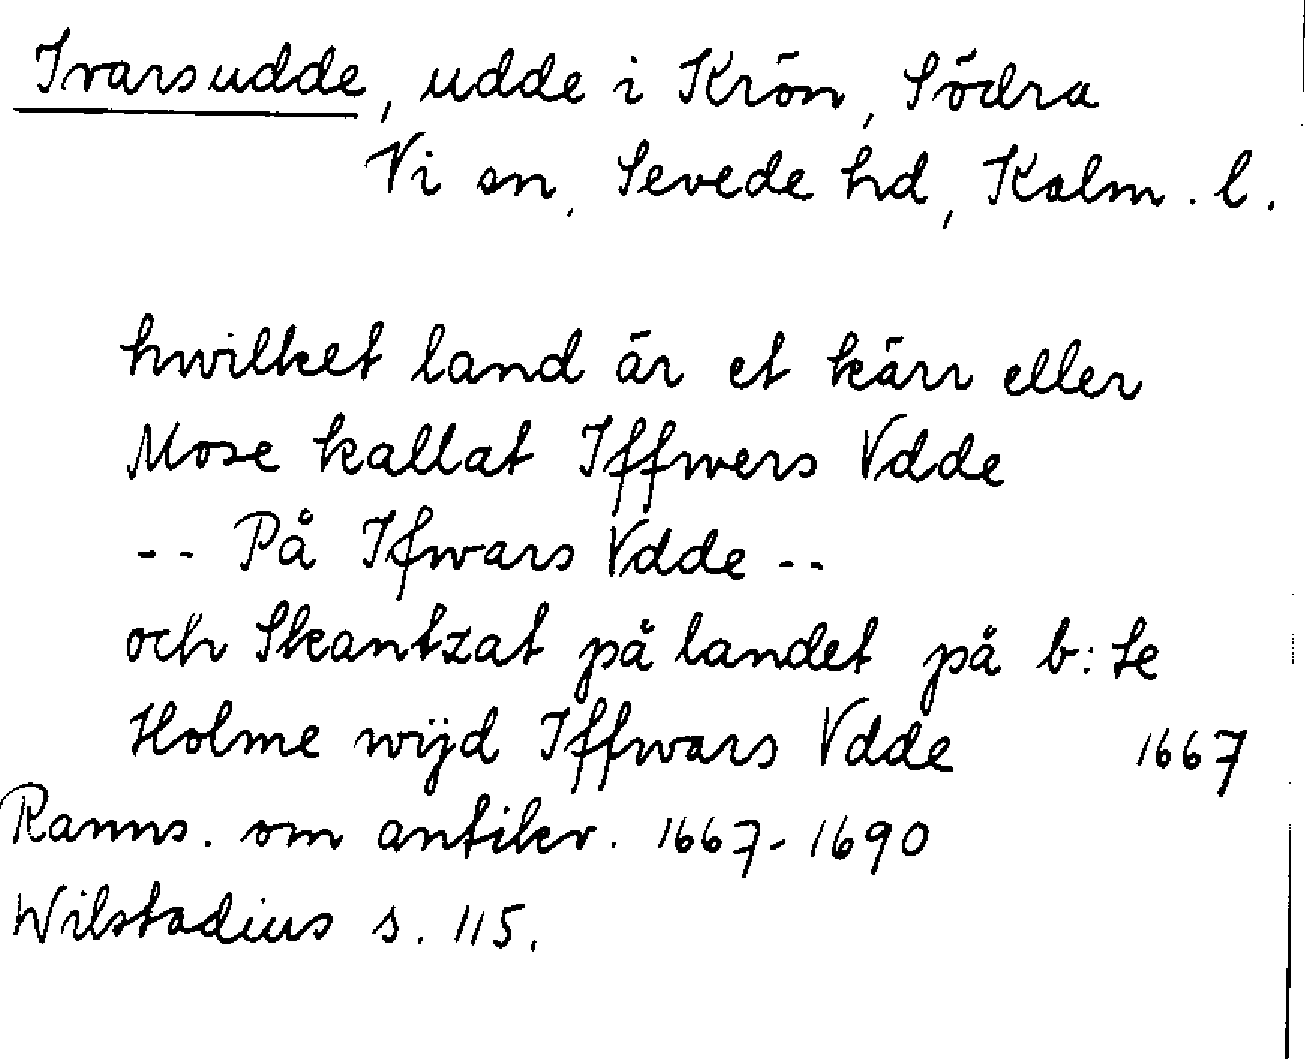 Ivarsudde, udde i Krön, Södra
Vi sn, Sevede hd, Kalm. l.
hwilket land är et kärr eller
Mose kallat Iffwers Vdde
-- På Ifwars Vdde --
och Skantzat på landet på b:te
Holme wijd Iffwars Vdde 1667
Ranns. om antikv. 1667-1690
Wilstadius s. 115.